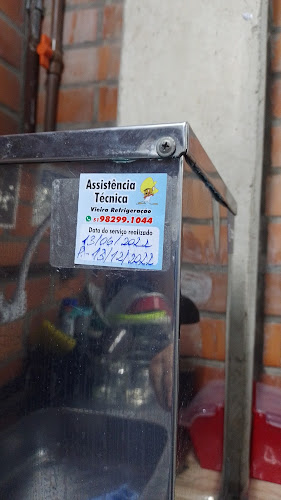 Assistência
Técnica
Vieira Refrigeração
51 98299.1044
Data do serviço realizado
13/06/2022
P- 13/12/2022